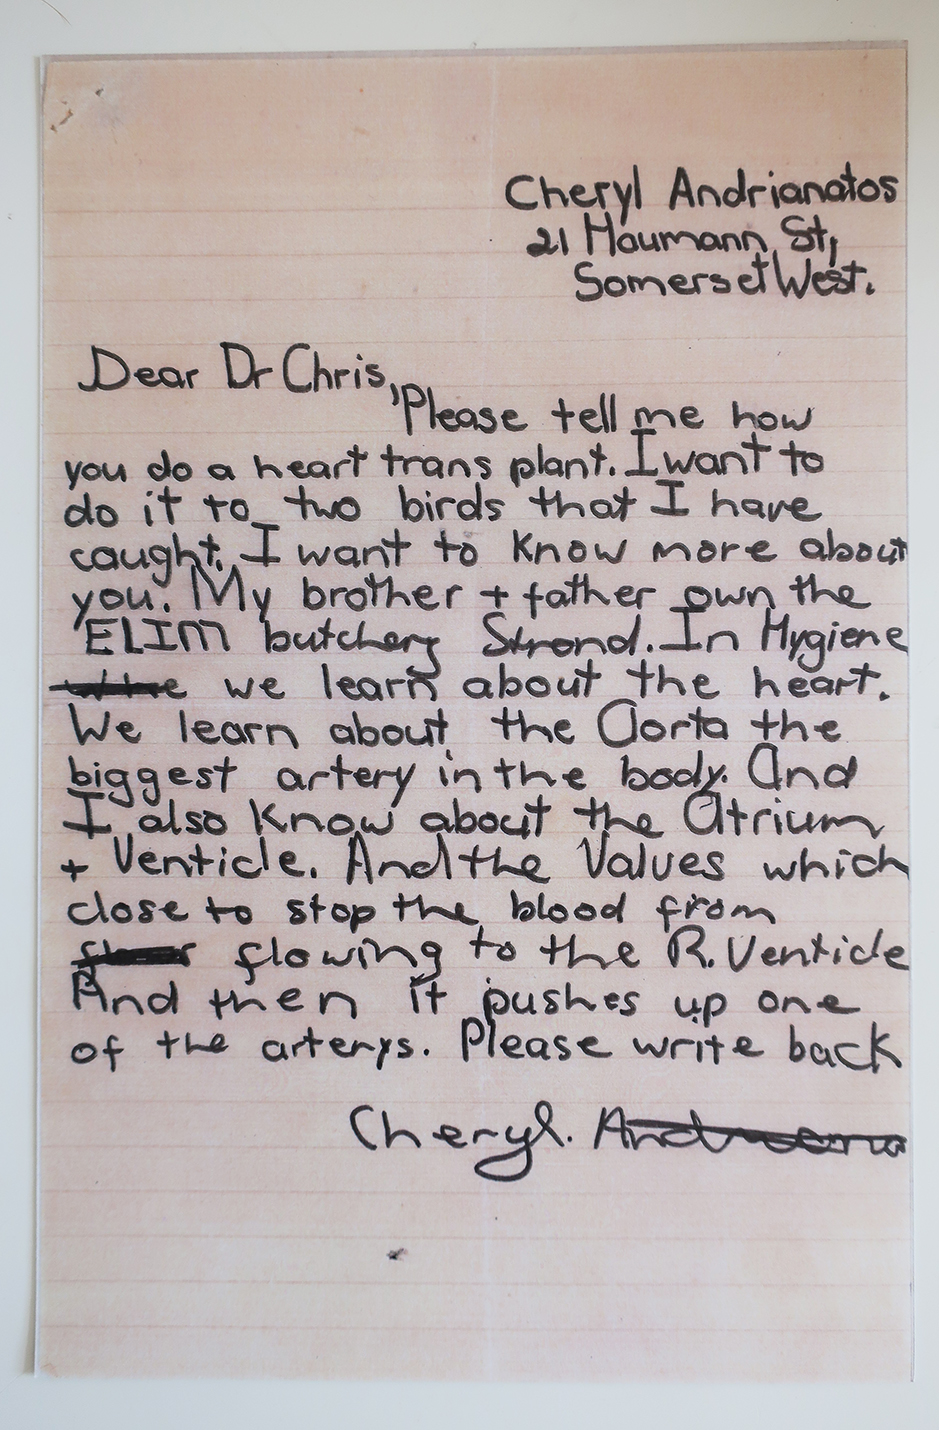 Cheryl Andrianatos
21 Haumann St,
Somerset West.
Dear Dr Chris,
Please tell me how
you do a heart trans plant. I want to
do it to two birds that I have
caught. I want to know more about
you. My brother + father own the
ELIM butchery Strand. In Hygiene
we learn about the heart.
We learn about the Aorta the
biggest artery in the body. And
I also know about the Atrium
+ Venticle. And the Values which
close to stop the blood from
flowing to the R. Venticle
And then it pushes up one
of the arterys. Please write back
Cheryl.